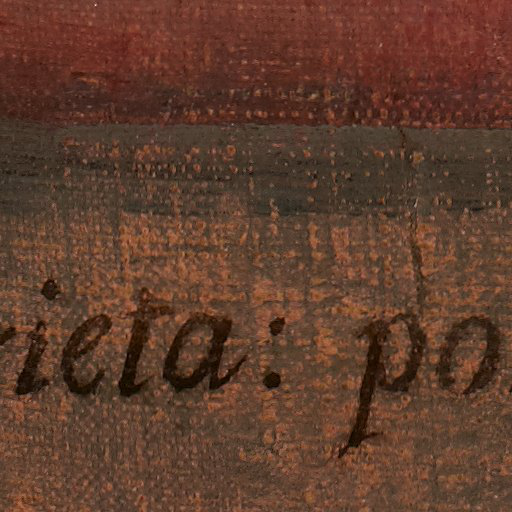 rieta: po